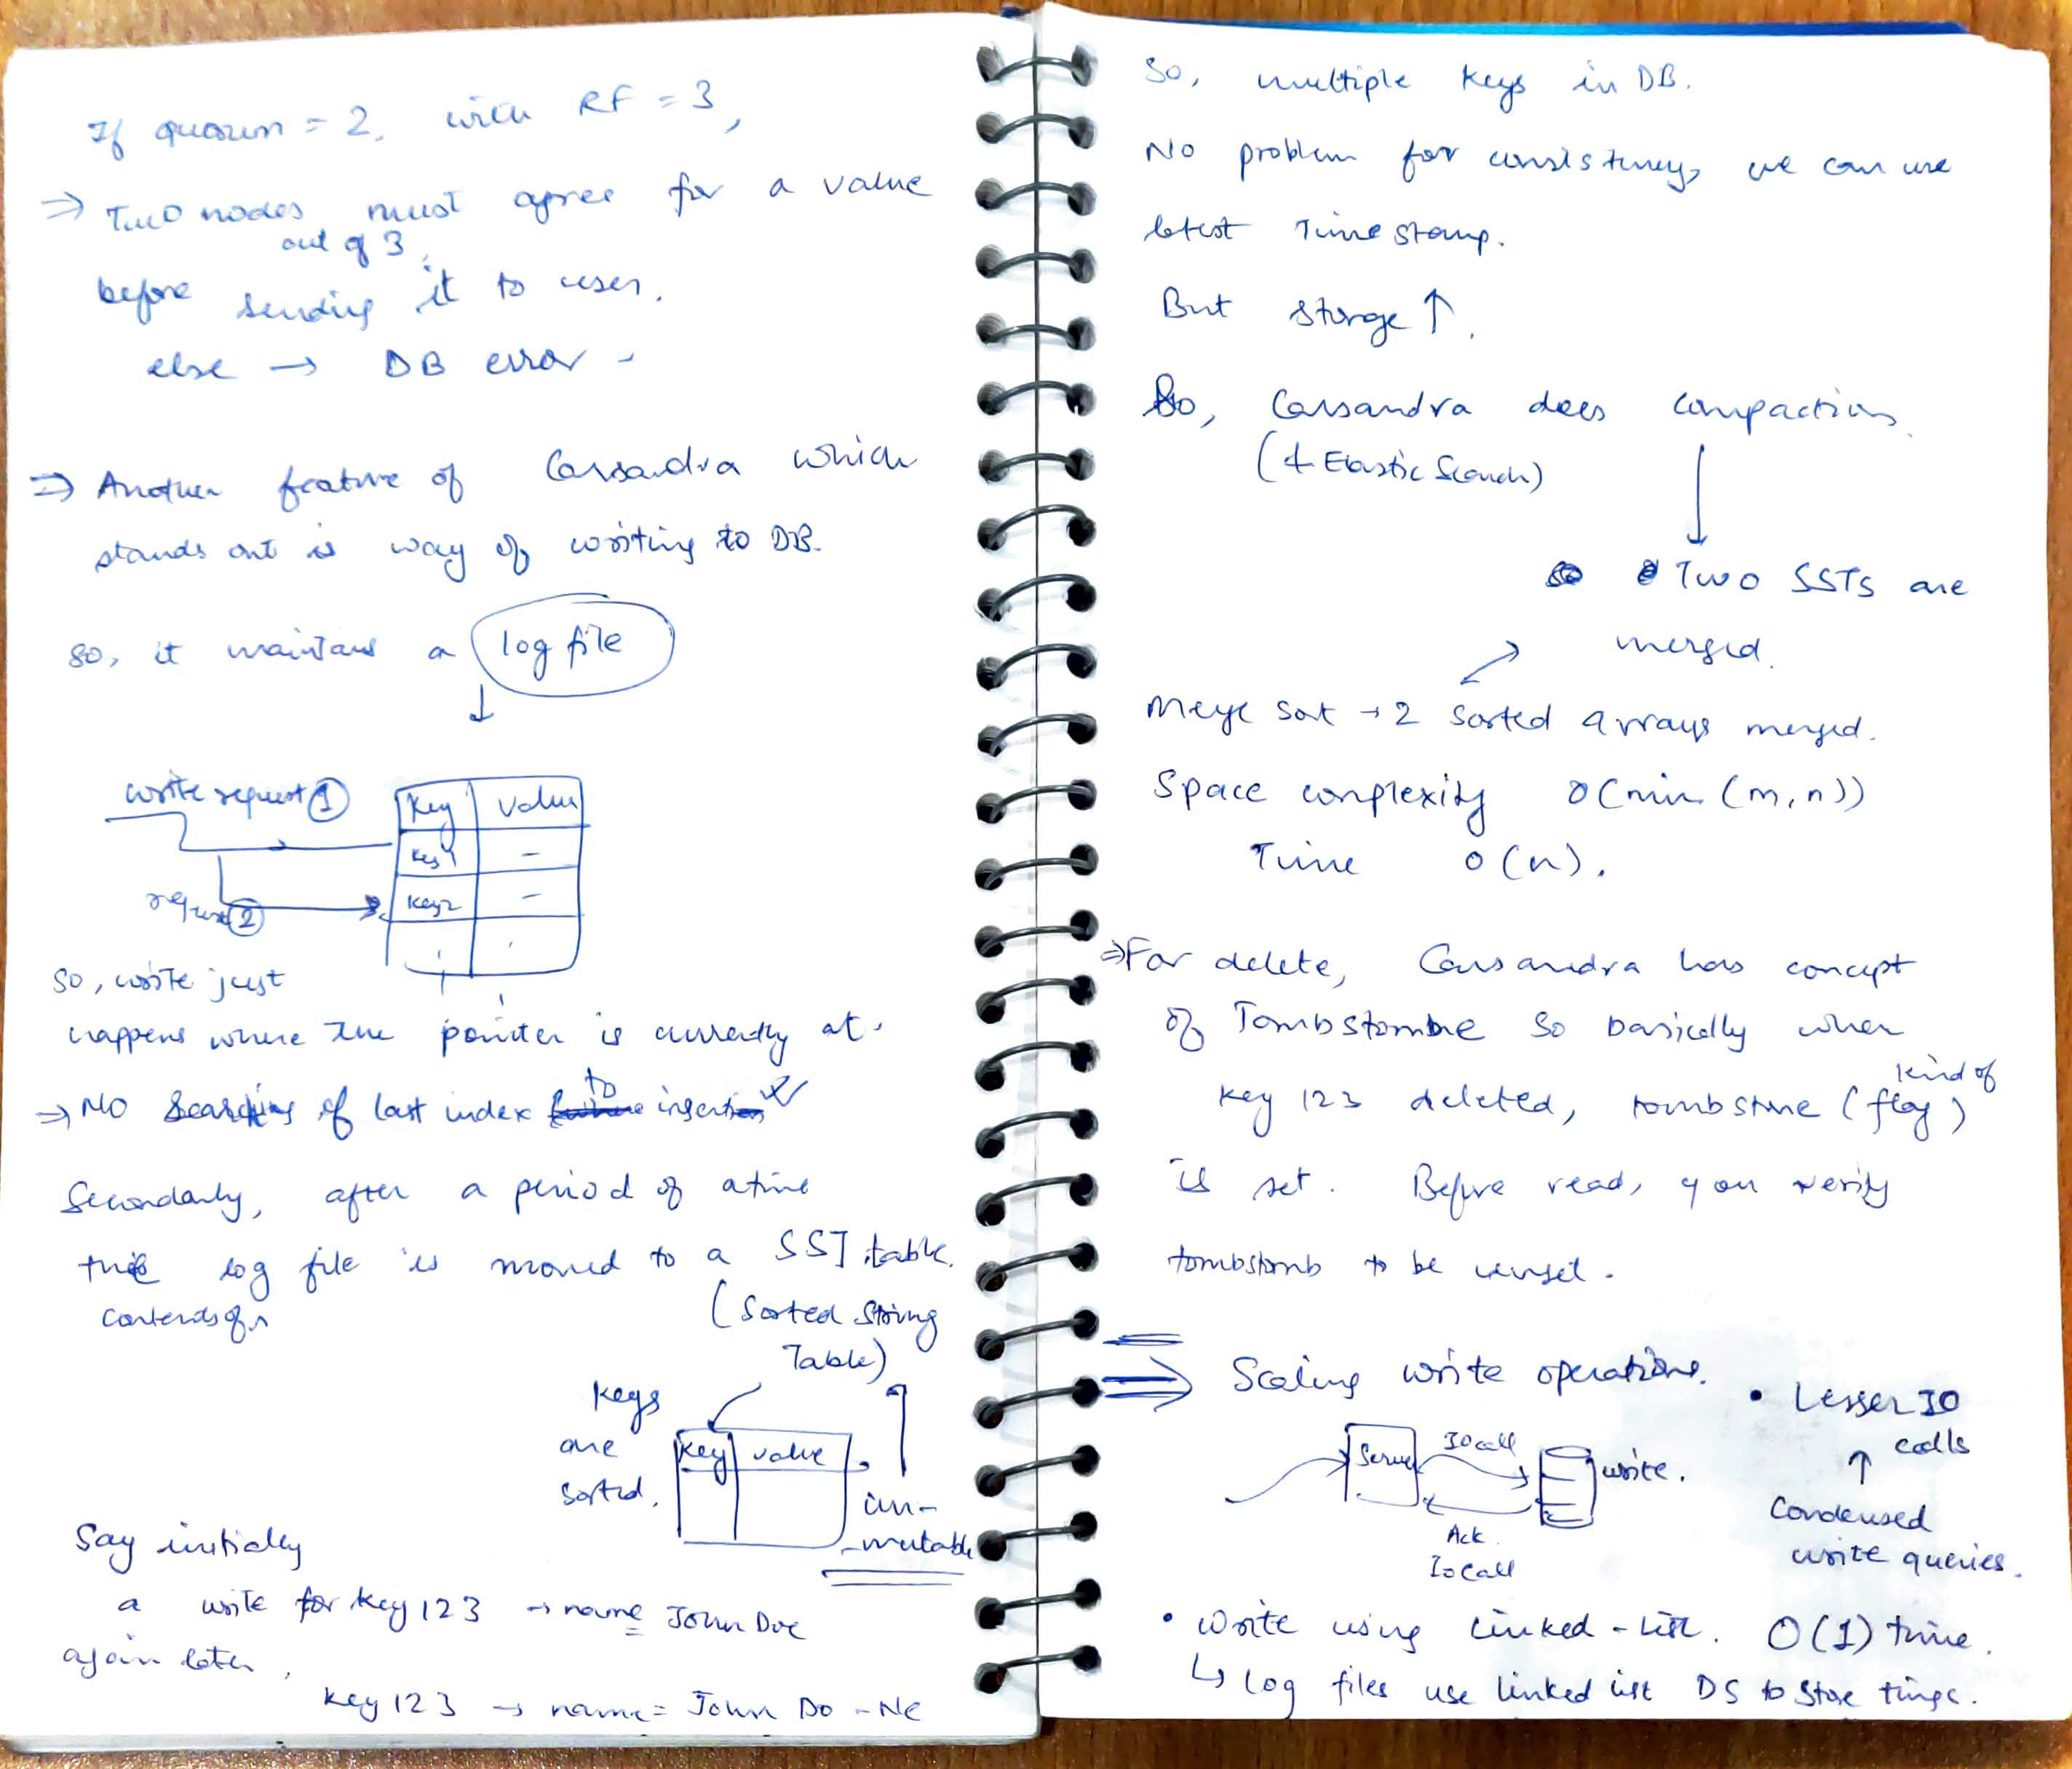 If quorum = 2, with RF = 3,
⇒ Two nodes must agree for a value
out of 3,
before sending it to user.
else → DB error -
⇒ Another feature of Cassandra which
stands out is way of writing to DB.
So, it maintains a log file
↓
write request ①
request ②
Key value
Key1 -
Key2 -
So, write just
happens where the pointer is currently at.
⇒ No searching of last index to insert
Secondarly, after a period of a time
the log file is moved to a SST table.
contents of
(Sorted String
Table)
Keys
are
sorted.
Key value
im-
-mutable
Say initially
a write for key 123 → name John Doe
again later,
key 123 → name = John Do - Ne
So, multiple keys in DB.
No problem for consistency, we can use
latest Timestamp.
But storge ↑.
So, Cassandra does compaction.
(+ Elastic Search)
↓
Two SSTs are
merged.
Merge sort → 2 sorted arrays merged.
Space complexity O(min (m, n))
Time O(n).
⇒ For delete, Cassandra has concept
of Tombstombe so basically when
key 123 deleted, tombstone (flag)
kind of
is set. Before read, you verify
tombstomb to be unset.
⇒ Scaling write operations.
Server
IO call
write.
Ack
IO Call
• Lesser IO
calls
↑
Condensed
write queries.
• Write using Linked - List. O(1) time.
↳ log files use linked list DS to store tings.